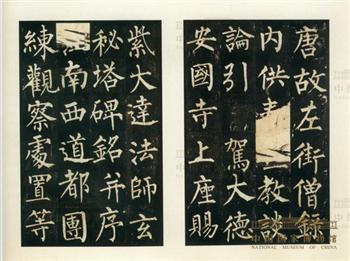 唐故左街僧錄
內供 教談
論引 駕大德
安國寺上座賜
紫大達法師玄
秘塔碑銘并序
江南西道都團
練觀察處置等
NATIONAL MUSEUM OF CHINA